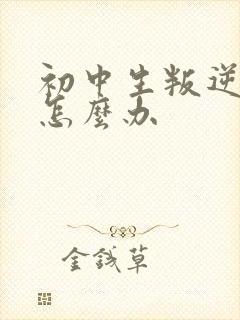 初中生叛逆
怎麼办
金錢草